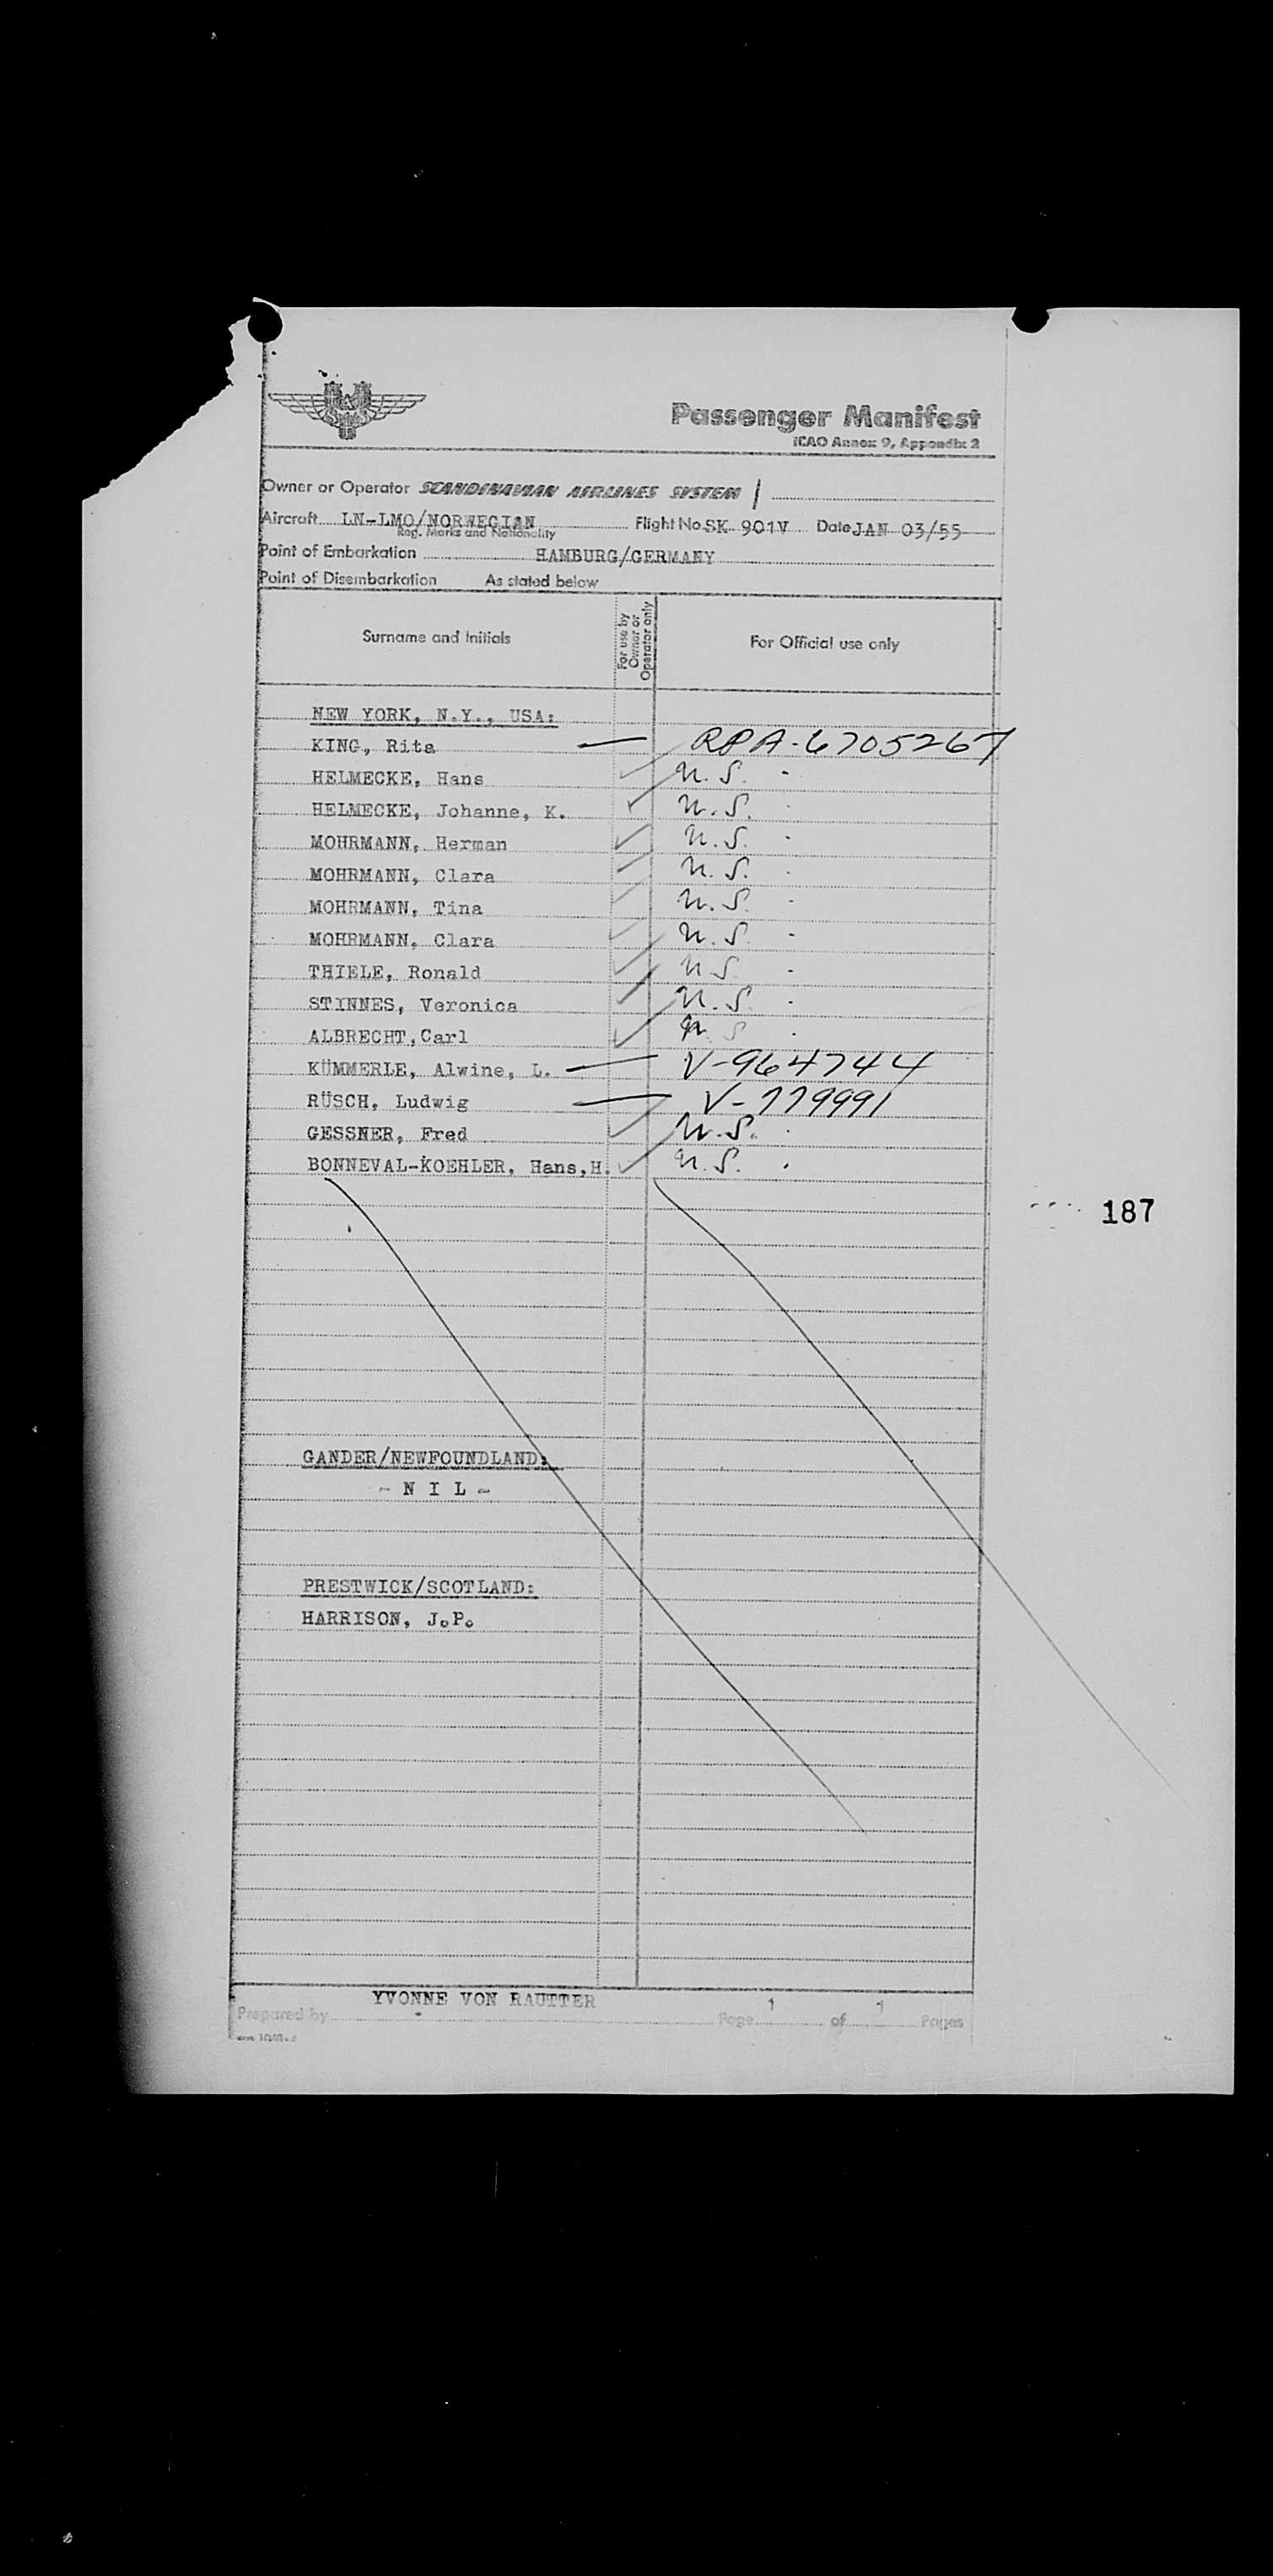 SAS
Passenger Manifest
ICAO Annex 9, Appendix 2
Owner or Operator SCANDINAVIAN AIRLINES SYSTEM /
Aircraft LN-LMO/NORWEGIAN Flight No. SK 901V Date JAN 03/55
Reg. Marks and Nationality
Point of Embarkation HAMBURG/GERMANY
Point of Disembarkation As stated below
Surname and Initials For use by Owner or Operator only For Official use only
NEW YORK, N.Y., USA:
KING, Rita — RPA-6705267
HELMECKE, Hans ✓ U.S.
HELMECKE, Johanne, K. ✓ U.S.
MOHRMANN, Herman ✓ U.S.
MOHRMANN, Clara ✓ U.S.
MOHRMANN, Tina ✓ U.S.
MOHRMANN, Clara ✓ U.S.
THIELE, Ronald ✓ U.S.
STINNES, Veronica ✓ U.S.
ALBRECHT, Carl ✓ U.S.
KÜMMERLE, Alwine, L. — V-964744
RÜSCH, Ludwig — V-779991
GESSNER, Fred ✓ U.S.
BONNEVAL-KOEHLER, Hans,H. ✓ U.S.
187
GANDER/NEWFOUNDLAND:
- N I L -
PRESTWICK/SCOTLAND:
HARRISON, J.P.
YVONNE VON RAUTTER
Prepared by Page 1 of 1 Pages